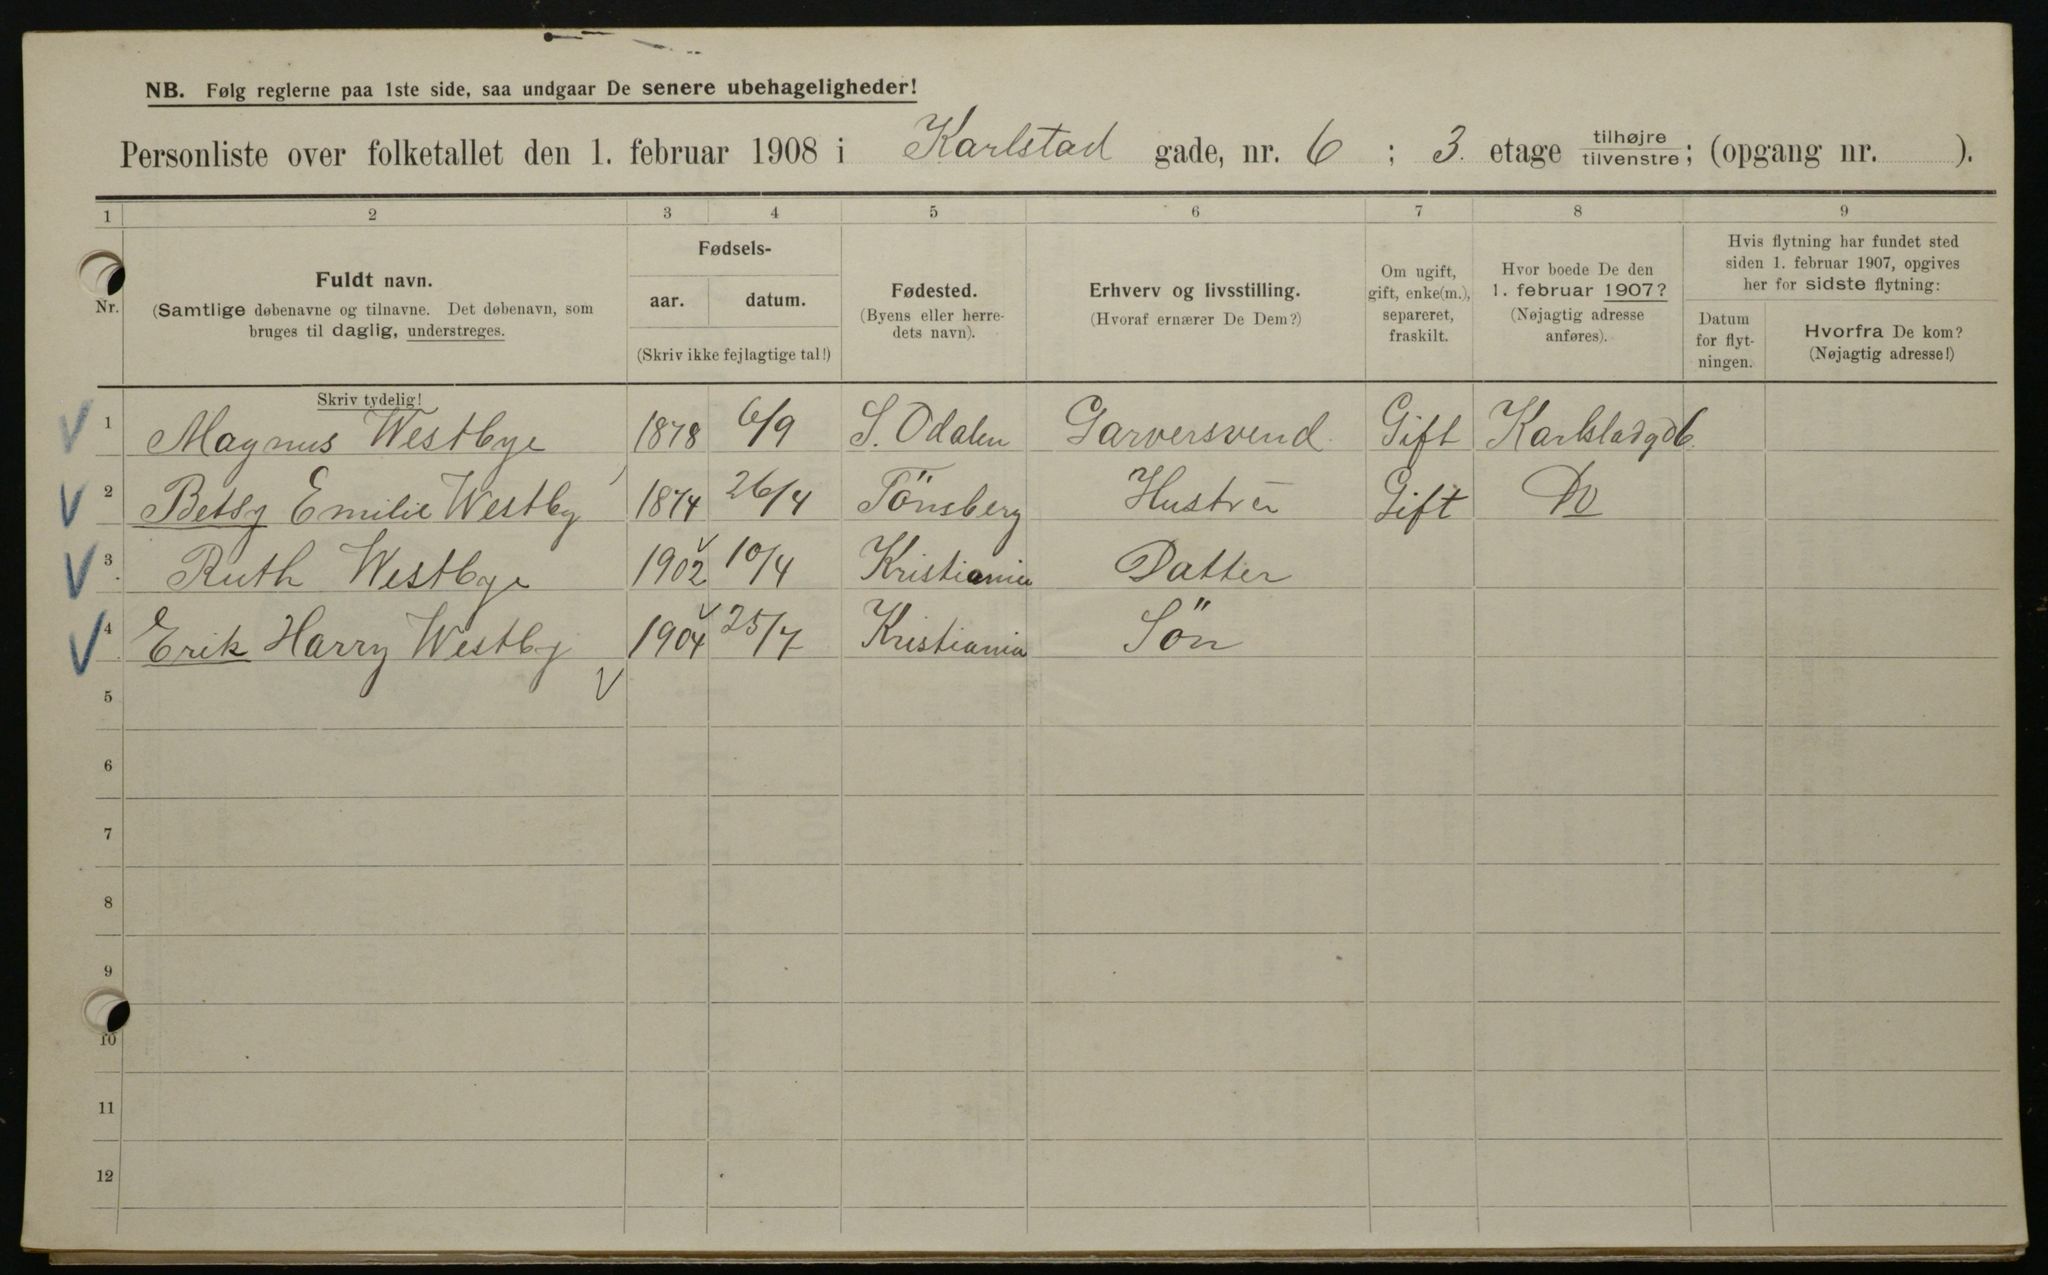 NB. Følg reglerne paa 1ste side, saa undgaar De senere ubehageligheder!
Personliste over folketallet den 1. februar 1908 i Karlstad gade, nr. 6 ; 3. etage tilhøjre/tilvenstre; (opgang nr. ).
1 2 3 4 5 6 7 8 9
Nr.
Fuldt navn.
(Samtlige døbenavne og tilnavne. Det døbenavn, som
bruges til daglig, understreges.
Skriv tydelig!
Fødsels-
aar. datum.
(Skriv ikke fejlagtige tal!)
Fødested.
(Byens eller herre-
dets navn).
Erhverv og livsstilling.
(Hvoraf ernærer De Dem?)
Om ugift,
gift, enke(m.),
separeret,
fraskilt.
Hvor boede De den
1. februar 1907?
(Nøjagtig adresse
anføres).
Hvis flytning har fundet sted
siden 1. februar 1907, opgives
her for sidste flytning:
Datum
for flyt-
ningen.
Hvorfra De kom?
(Nøjagtig adresse!)
1 Magnus Westbye 1878 6/9 S. Odalen Garversvend. Gift Karlstadgd 6.
2 Betsy Emilie Westby 1874 26/4 Tönsberg Hustru Gift Do
3 Ruth Westbye 1902 10/4 Kristiania Datter
4 Erik Harry Westby 1904 25/7 Kristiania Sön
5
6
7
8
9
10
11
12